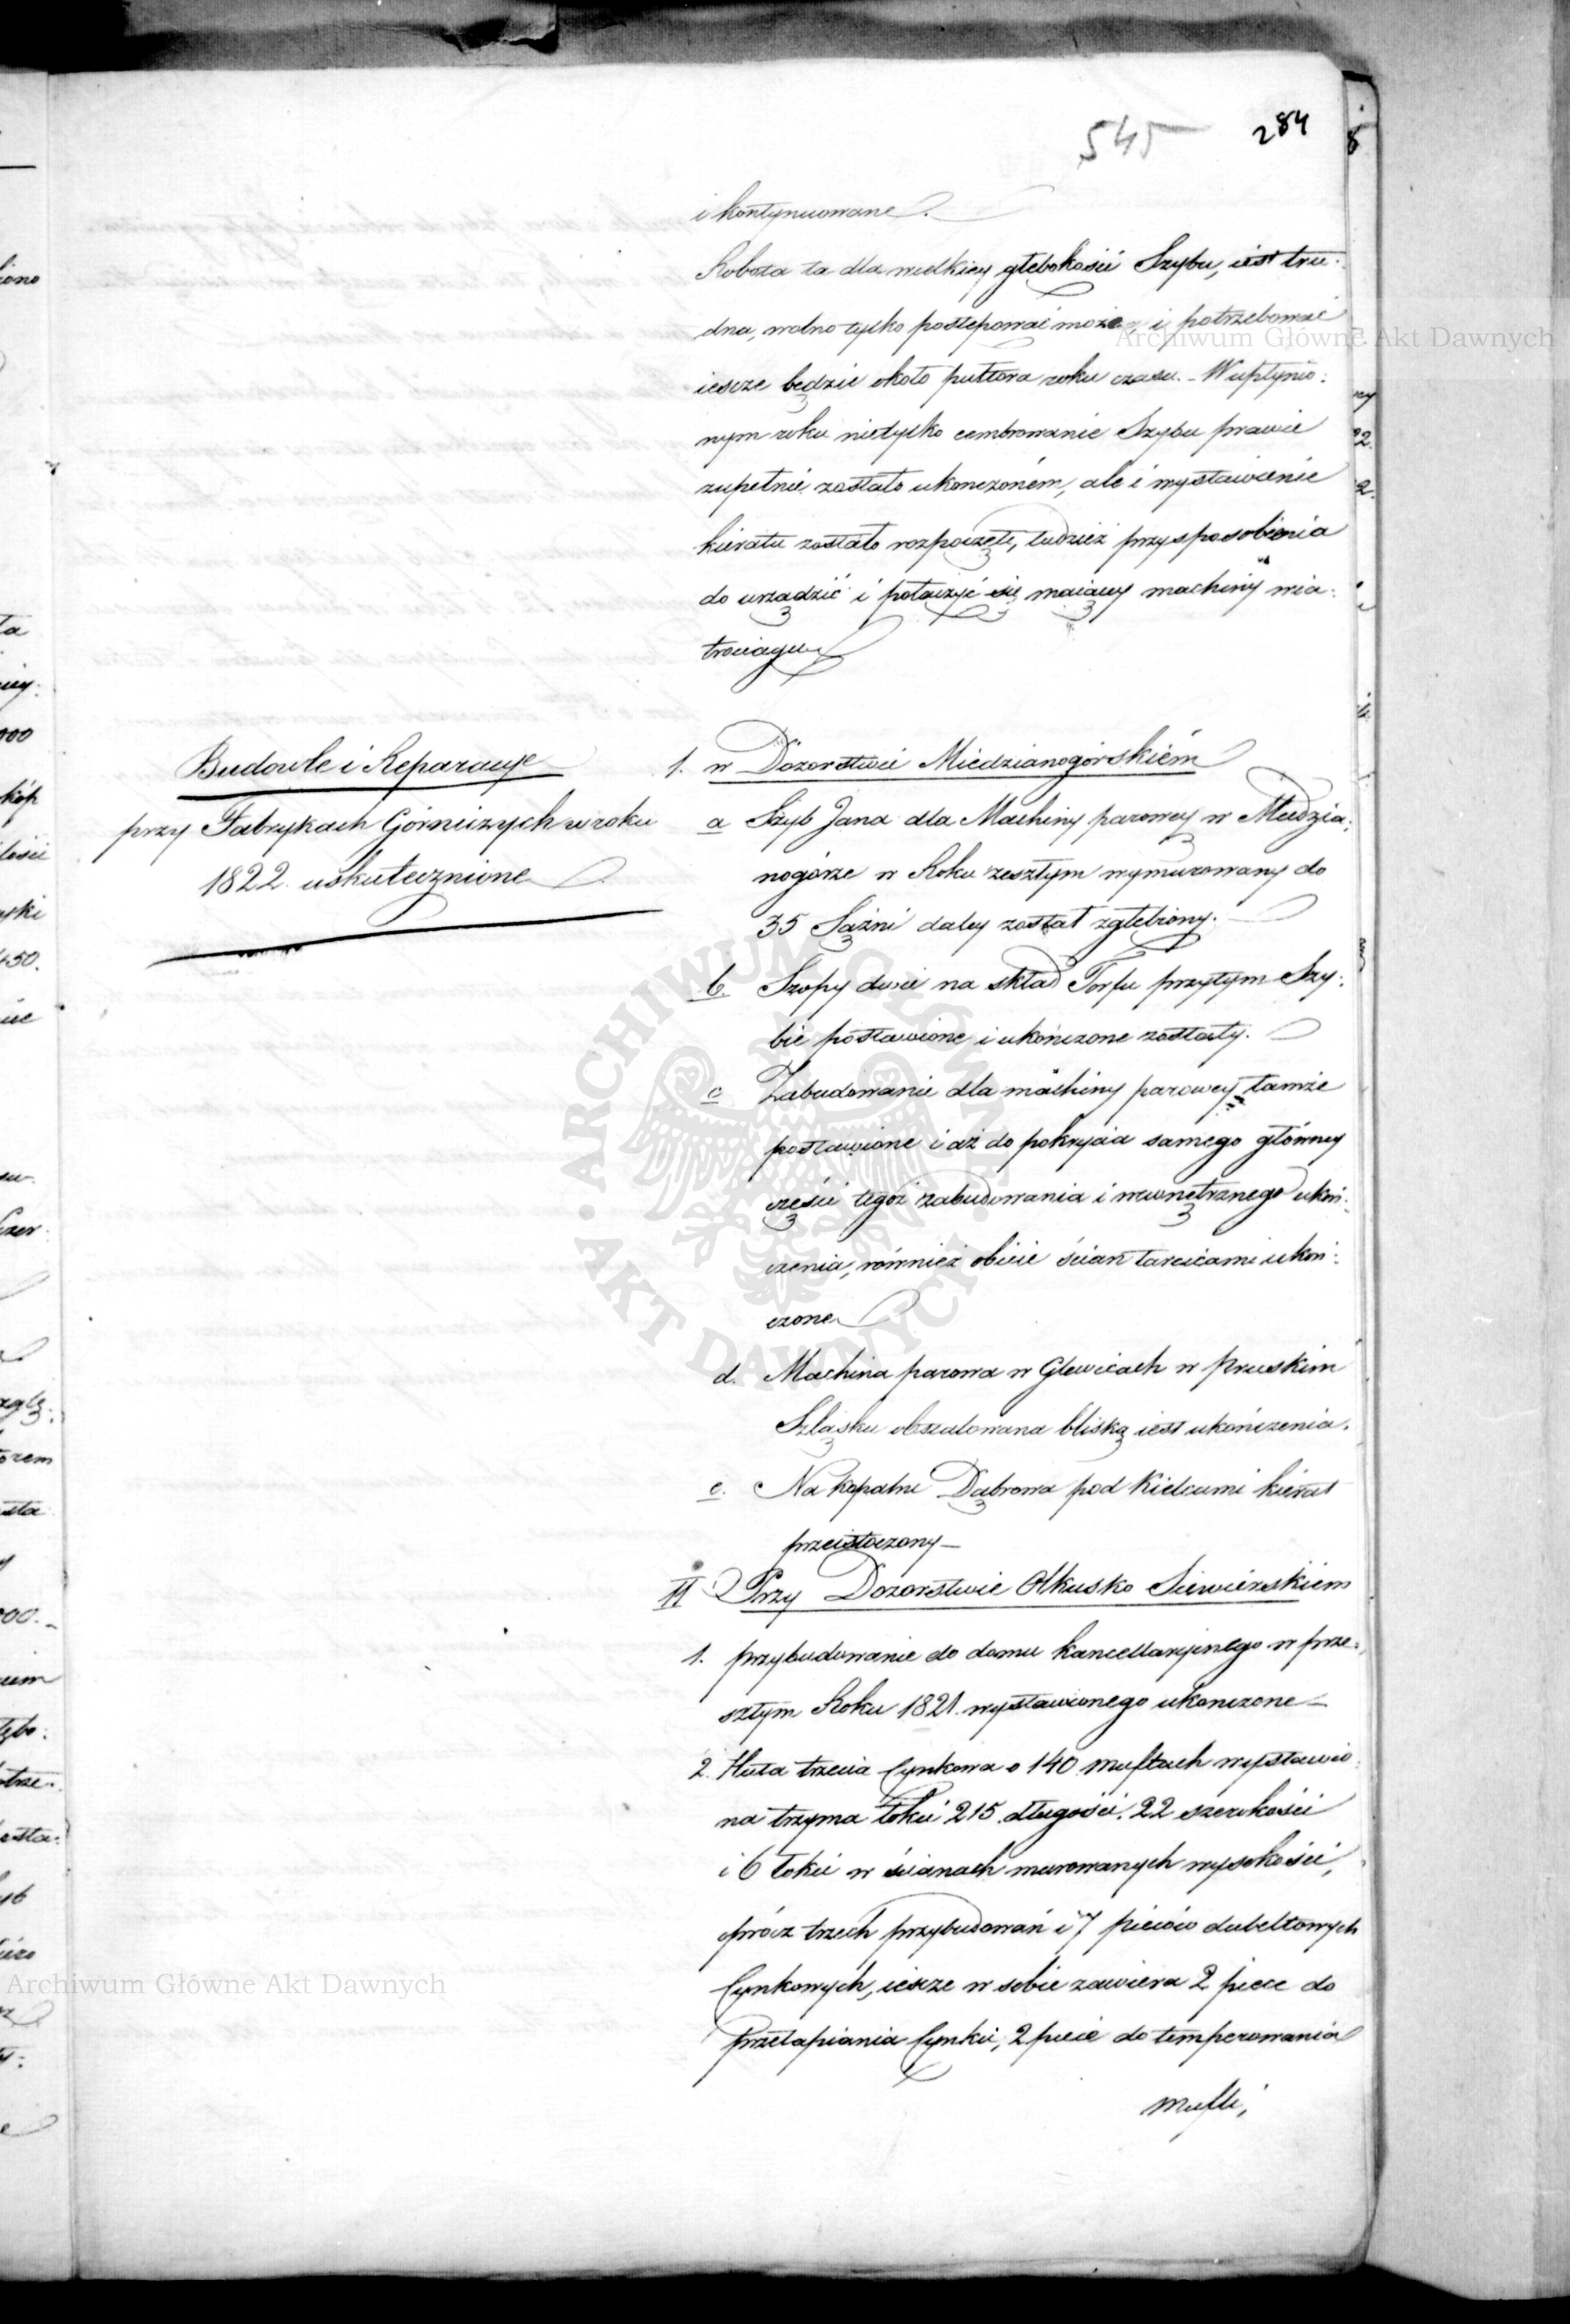 545 284
i kontynuowane.
Robota ta dla wielkiey głębokości Szybu, iest tru:
dna, wolno tylko postępować może, i potrzebować
ieszcze będzie około puttora roku czasu. - W upłynio:
nym roku nietylko cembrowanie Szybu prawie
zupełnie zostało ukończoném, ale i wystawienie
kieratu zostało rozpoczęte, tudzież przysposobienia
do urządzić i połączyć się maiącey machiny wia:
trociągu
Budowle i Reparacye
przy Fabrykach Górniczych w roku
1822. uskutecznione
1. w Dozorstwie Miedzianogórskiém
a Szyb Jana dla Machiny parowey w Miedzia:
nogórze w Roku zeszłym wymurowany do
35 Sążni daley został zgłębiony.
b. Szopy dwie na skład Torfu przytym Szy:
bie postawione i ukończone zostały.
c Zabudowanie dla machiny parowey tamże
postawione i aż do pokrycia samego główney
części tegoż zabudowania i wewnętrznego ukoń:
czenia, również obicie ścian tarcicami ukoń:
czone
d. Machina parowa w Glewicach w Pruskim
Szląsku obstalowana bliską iest ukończenia.
e. Na kopalni Dąbrowa pod Kielcami kierat
przeistoczony —
II Przy Dozorstwie Olkusko Siewierskiem
1. przybudowanie do domu kancellaryinego w prze:
szłym Roku 1821. wystawionego ukonczone —
2. Huta trzecia Cynkowa o 140 muflach wystawio:
na trzyma łokci 215. długości. 22 szerokości
i 6 łokci w ścianach murowanych wysokości,
oprócz trzech przybudowań i 7 pieców dubeltowych
Cynkowych, ieszcze w sobie zawiera 2 piece do
przetapiania Cynku, 2 piece do temperowania
mufli,
Archiwum Główne Akt Dawnych
Archiwum Główne Akt Dawnych
ARCHIWUM GŁÓWNE · AKT DAWNYCH ·